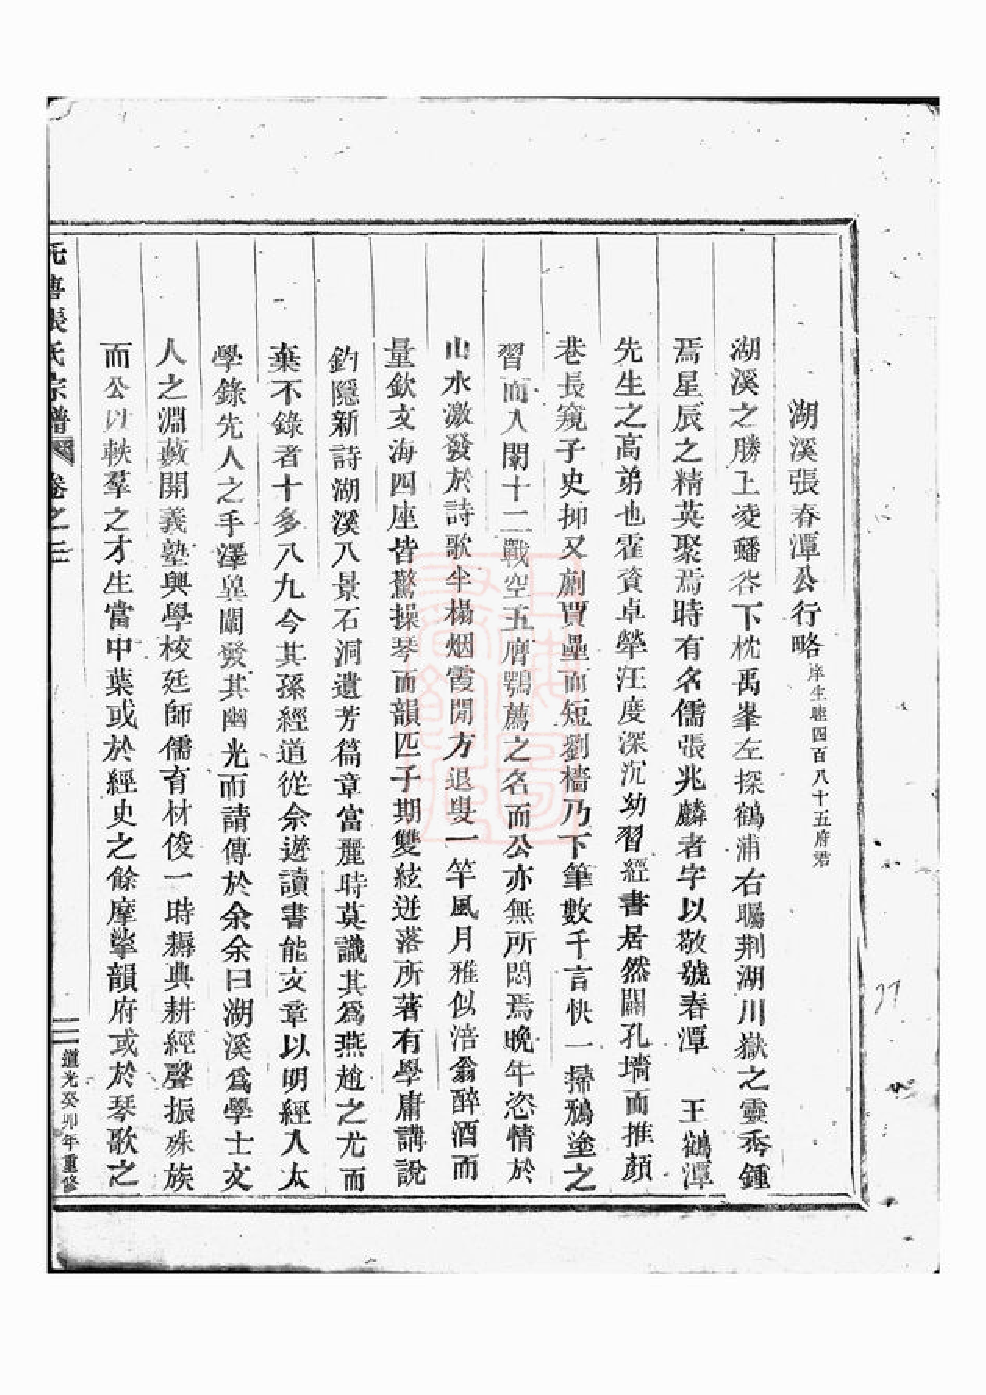 湖溪張春潭公行略庠生聰四百八十五府君
湖溪之勝上凌蟠谷下枕禹峯左探鶴浦右矚荆湖川嶽之靈秀鍾
焉星辰之精英聚焉時有名儒張兆麟者字以敬號春潭 王鶴潭
先生之高弟也霍資卓犖汪度深沉幼習經書居然闢孔墻而推顏
巷長窺子史抑又劘賈壘而短劉墻乃下筆數千言快一掃鴉塗之
習而入闈十二戰空五膺鶚薦之名而公亦無所悶焉晚年恣情於
山水激發於詩歌半榻烟霞閒方退叟一竿風月雅似涪翁醉酒而
量欽文海四座皆驚操琴而韻匹子期雙絃迸落所著有學庸講說
釣隱新詩湖溪八景石洞遺芳篇章富麗時莫識其爲燕趙之尤而
棄不錄者十多八九今其孫經道從余遊讀書能文章以明經入太
學錄先人之手澤㫒闡發其幽光而請傳於余余曰湖溪爲學士文
人之淵藪開義塾興學校延師儒育材俊一時耨典耕經聲振殊族
而公以軼羣之才生當中葉或於經史之餘摩挲韻府或於琴歌之
張氏宗譜 卷之二
道光癸卯年重修
77